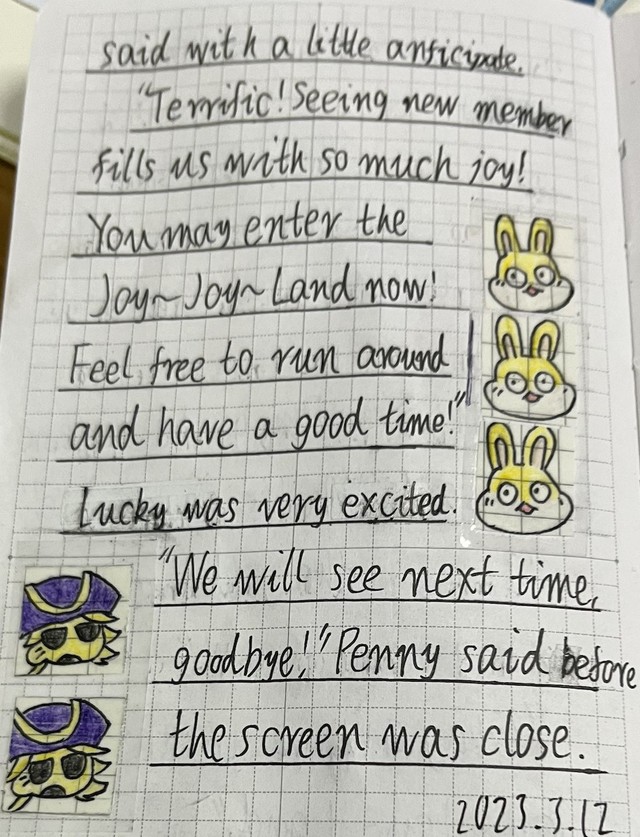 said with a little anticipate.
"Terrific! Seeing new member
fills us with so much joy!
You may enter the
Joy~Joy~Land now!
Feel free to run around
and have a good time!"
Lucky was very excited.
"We will see next time,
goodbye!" Penny said before
the screen was close.
2023.3.12